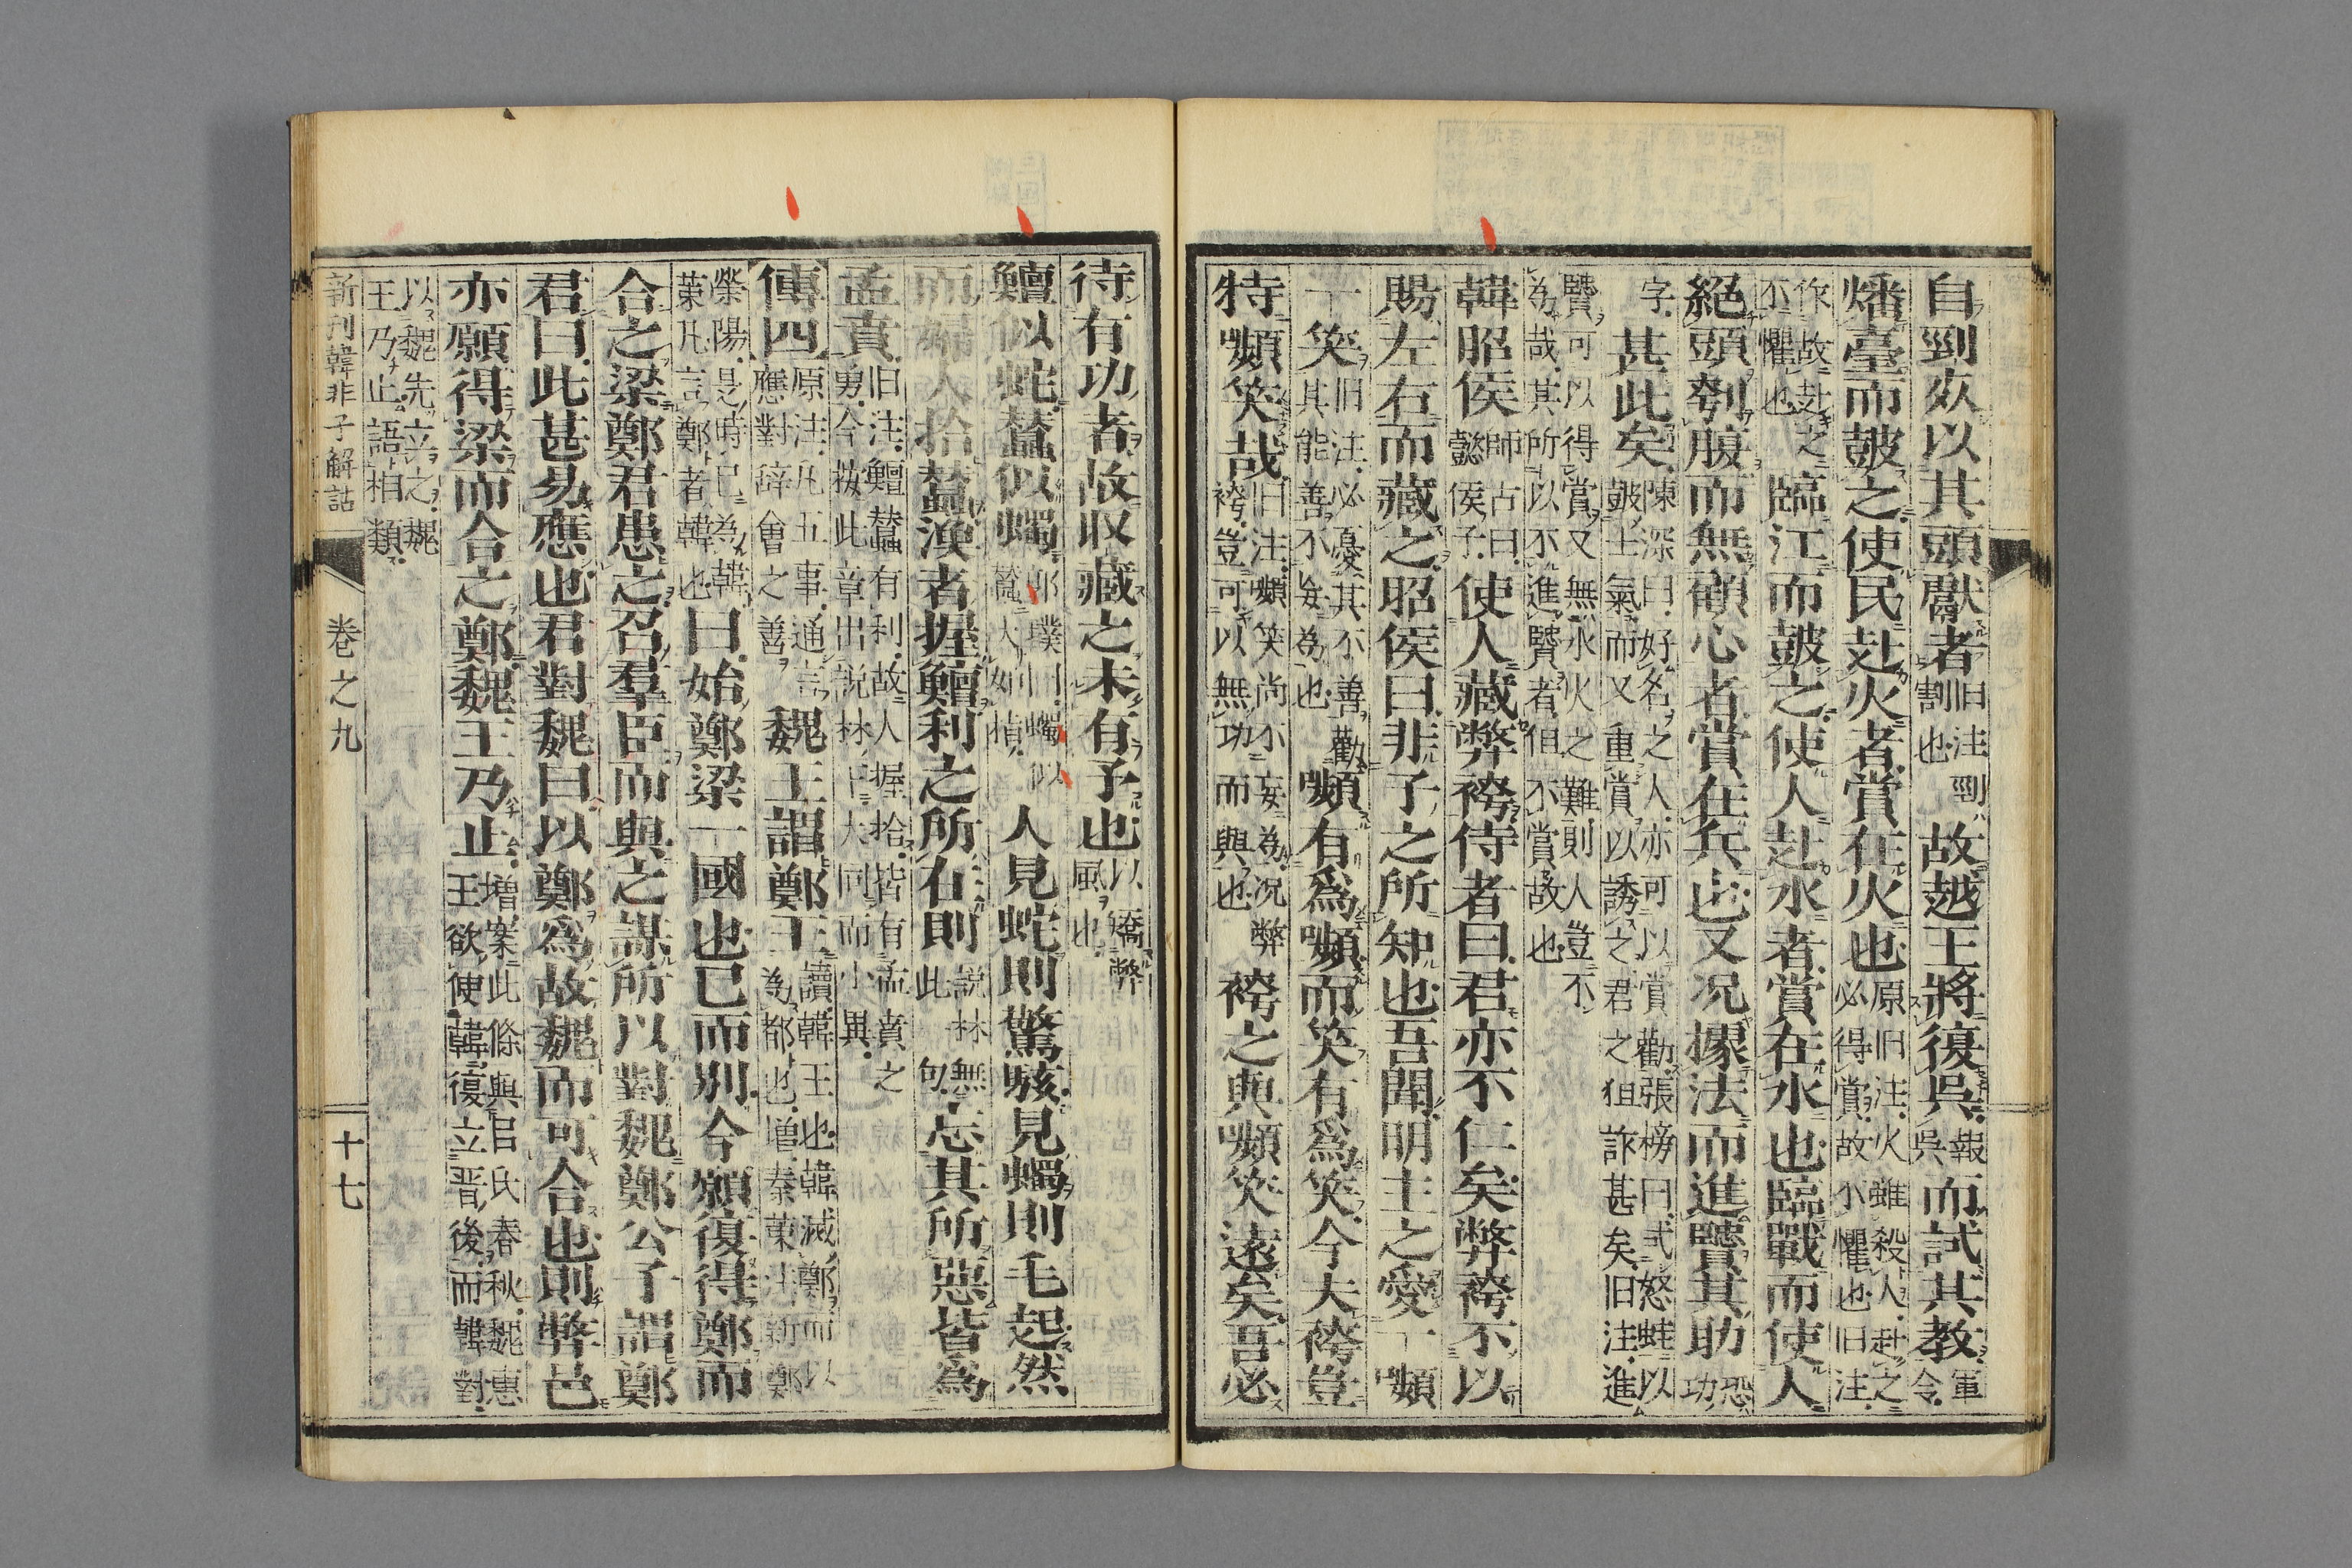 自剄死以其頭獻者旧注剄割也故越王將復吳報吳而試其教軍令
燔臺而鼓之使民赴火者賞在火也原旧注火雖殺人赴之必得賞故不懼也旧注
作故赴之不懼也臨江而鼓之使人赴水者賞在水也臨戰而使人
絕頭刳腹而無顧心者賞在兵也又况據法而進賢其助功恐
字甚此矣陳深曰好名之人亦可以賞勸張榜曰式怒蛙以鼓士氣而又重賞以誘之君之狙詐甚矣旧注進
賢可以得賞又無水火之難則人豈不為哉其所以不進賢者但不賞故也
韓昭侯師古曰懿侯子使人藏弊袴侍者曰君亦不仁矣弊袴不以
賜左右而藏之昭侯曰非子之所知也吾聞明主之愛一嚬
一笑旧注必憂其不善勸其能善不妄為也嚬有爲嚬而笑有爲笑今夫袴豈
特嚬笑哉旧注嚬笑尚不妄為况弊袴豈可以無功而與也袴之與嚬笑遠矣吾必
待有功者故収藏之未有予也以矯弊風也
鱣似蛇蠶似蠋郎璞曰蠋似蠶大如楨人見蛇則驚駭見蠋則毛起然
而婦人拾蠶漁者握鱣利之所在則說林無此句忘其所惡皆為
孟賁旧注鱣蠶有利故人握拾皆有孟賁之勇今按此章出說林下大同而小異
傳四原注凡五事通言應對辭會之善魏王謂鄭王讀韓王也韓滅鄭而以為都也增秦策注新鄭
滎陽是時已為韓策凡言鄭者韓也曰始鄭梁一國也已而別今願復得鄭而
合之梁鄭君患之召羣臣而與之謀所以對魏鄭公子謂鄭
君曰此甚易應也君對魏曰以鄭爲故魏而可合也則弊邑
亦願得梁而合之鄭魏王乃止增案此條與呂氏春秋魏惠王欲使韓復立晋後而韓對
以魏先立之魏王乃止語相類
新刊韓非子解詁
卷之九
十七